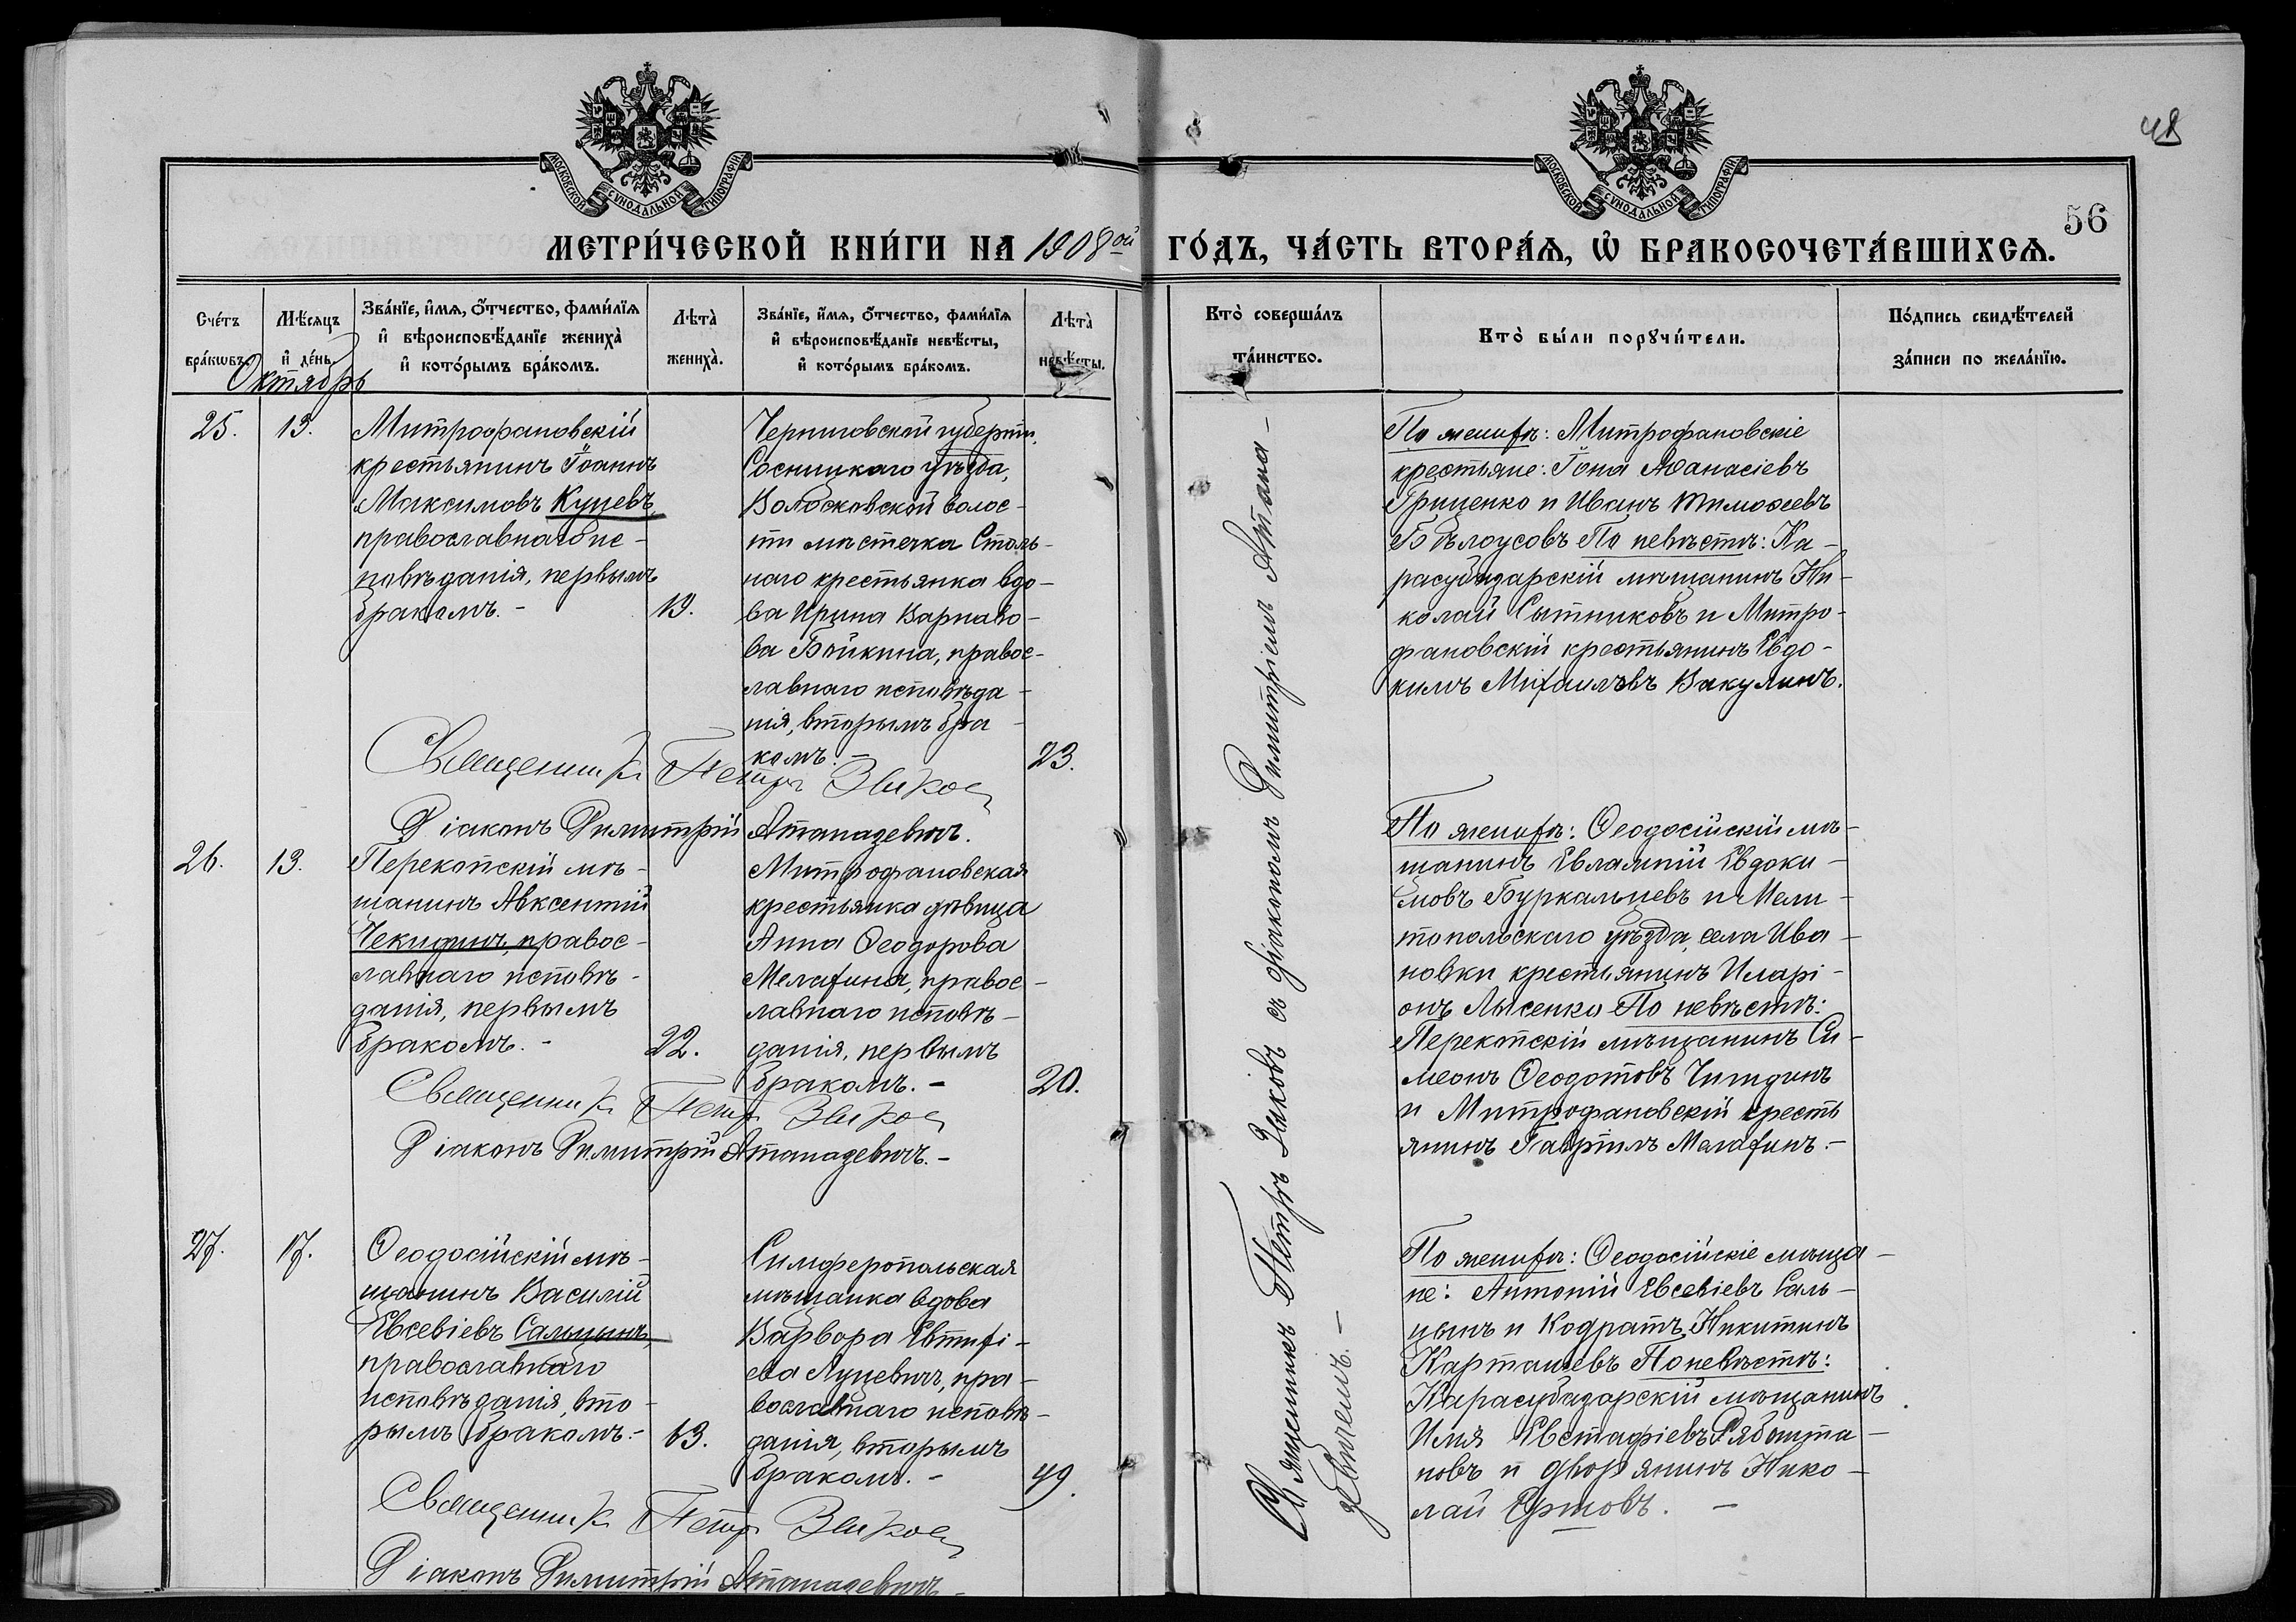 48
56
МОСКОВСКОЙ СѴНОДАЛЬНОЙ ТИПОГРАФІИ
МОСКОВСКОЙ СѴНОДАЛЬНОЙ ТИПОГРАФІИ
МЕТРИ́ЧЕСКОЙ КНИ́ГИ НА 1908ой ГО́ДЪ, ЧА́СТЬ ВТОРА́Ѧ, Ѽ БРАКОСОЧЕТА́ВШИХСѦ.
Сче́тъ бра́кѡвъ.
Мѣ́сяцъ и҆ де́нь.
Зва́нїе, и҆́мя, ѻ҆́тчество, фами́лїя и҆ вѣроисповѣ́данїе жениха̀ и҆ кото́рымъ бра́комъ.
Лѣта̀ жениха̀.
Зва́нїе, и҆́мя, ѻ҆́тчество, фами́лїя и҆ вѣроисповѣ́данїе невѣ́сты, и҆ кото́рымъ бра́комъ.
Лѣта̀ невѣ́сты.
Кто̀ соверша́лъ та́инство.
Кто̀ бы́ли порꙋчи́тели.
По́дпись свидѣ́телей за́писи по жела́нїю.
Октябрь
25.
13.
Митрофановскій
крестьянинъ Іоаннъ
Максимовъ Куцевъ,
православнаго ис-
повѣданія, первымъ
бракомъ. -
19.
Черниговской губерніи,
Сосницкаго уѣзда,
Волосковской волос-
ти мѣстечка Столь-
наго крестьянка вдо-
ва Ирина Варнаво-
ва Бойкина, правос-
лавнаго исповѣда-
нія, вторымъ бра-
комъ. -
23.
Священникъ Петръ Зыков
Діаконъ Димитрій Атаназевичъ.
По женихѣ: Митрофановскіе
крестьяне: Іона Аѳанасіевъ
Гриценко и Иванъ Тимоѳеевъ
Бѣлоусовъ По невѣстѣ: Ка-
расубазарскій мѣщанинъ Ни-
колай Сытниковъ и Митро-
фановскій крестьянинъ Евдо-
кимъ Михаиловъ Вакулинъ.
26.
13.
Перекопскій мѣ-
щанинъ Авксентій
Чекидинъ, правос-
лавнаго исповѣ-
данія, первымъ
бракомъ. -
22.
Митрофановская
крестьянка дѣвица
Анна Ѳеодорова
Мелахина, правос-
лавнаго исповѣ-
данія, первымъ
бракомъ. -
20.
Священникъ Петръ Зыков
Діаконъ Димитрій Атаназевичъ. -
По женихѣ: Ѳеодосійскій мѣ-
щанинъ Евлампій Евдоки-
мовъ Буркальцевъ и Мели-
топольскаго уѣзда, села Ива-
новки крестьянинъ Иларі-
онъ Лысенко По невѣстѣ:
Перекопскій мѣщанинъ Си-
меонъ Ѳеодотовъ Чигидинъ
и Митрофановскій кресть
янинъ Гавріилъ Мелахинъ. -
27.
17.
Ѳеодосійскій мѣ-
щанинъ Василій
Евсевіевъ Сальцынъ,
православнаго
исповѣданія, вто-
рымъ бракомъ. -
63.
Симферопольская
мѣщанка вдова
Варвара Евтихі-
ева Луцевичъ, пра-
вославнаго исповѣ-
данія, вторымъ
бракомъ. -
49.
Священникъ Петръ Зыков
Діаконъ Димитрій Атаназевичъ -
По женихѣ: Ѳеодосійскіе мѣща-
не: Антоній Евсевіевъ Саль-
цынъ и Кодратъ Никитинъ
Карташевъ По невѣстѣ:
Карасубазарскій мѣщанинъ
Илія Евстафіевъ Рябошта-
новъ и дворянинъ Нико-
лай Ертовъ. -
Священникъ Петръ Зыковъ съ діакономъ Димитріемъ Атана-
зевичемъ. -